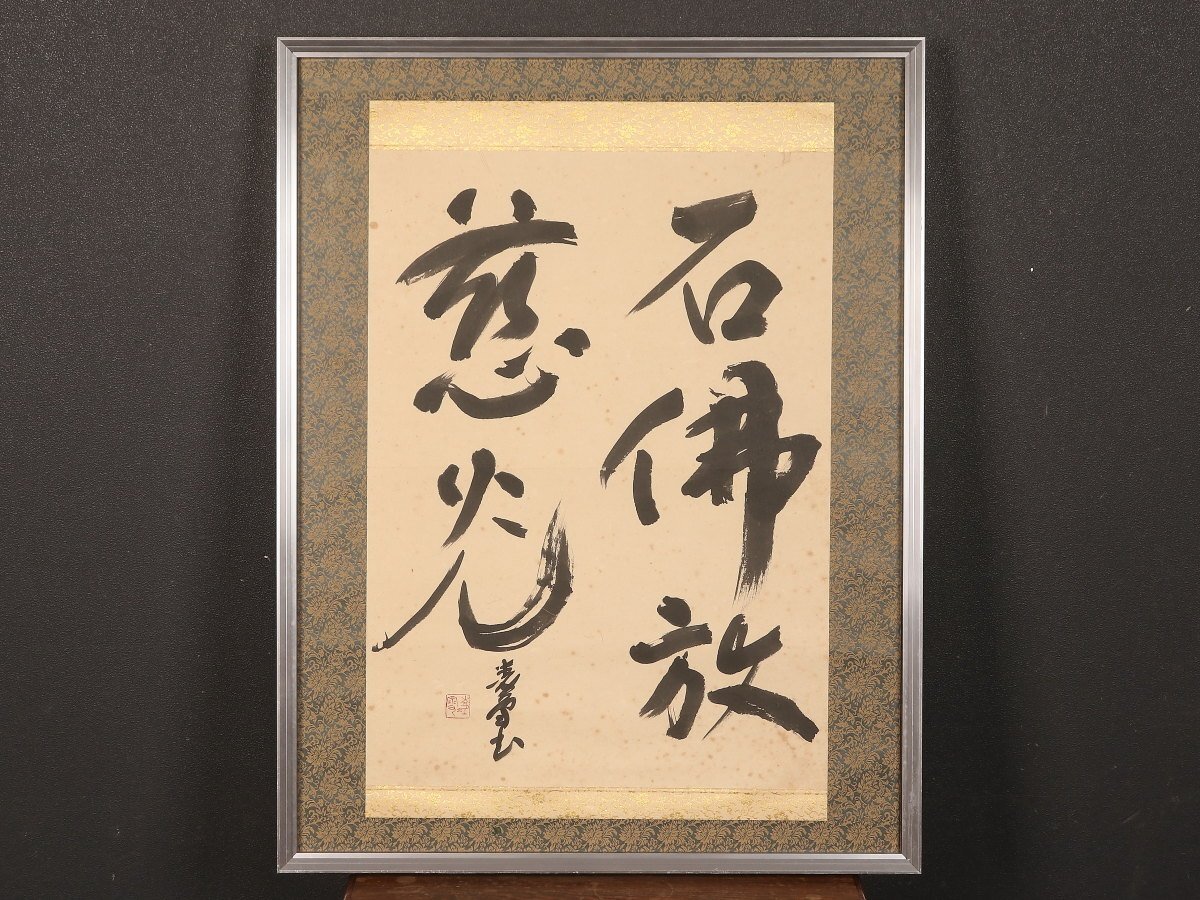 石佛放
慈光